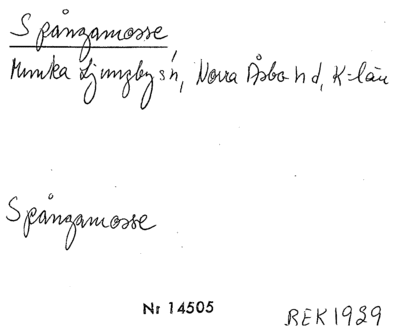 Spångamosse
Munka Ljungby sn, Norra Åsbo hd, K-län
Spångamosse
Nr 14505
REK 1929